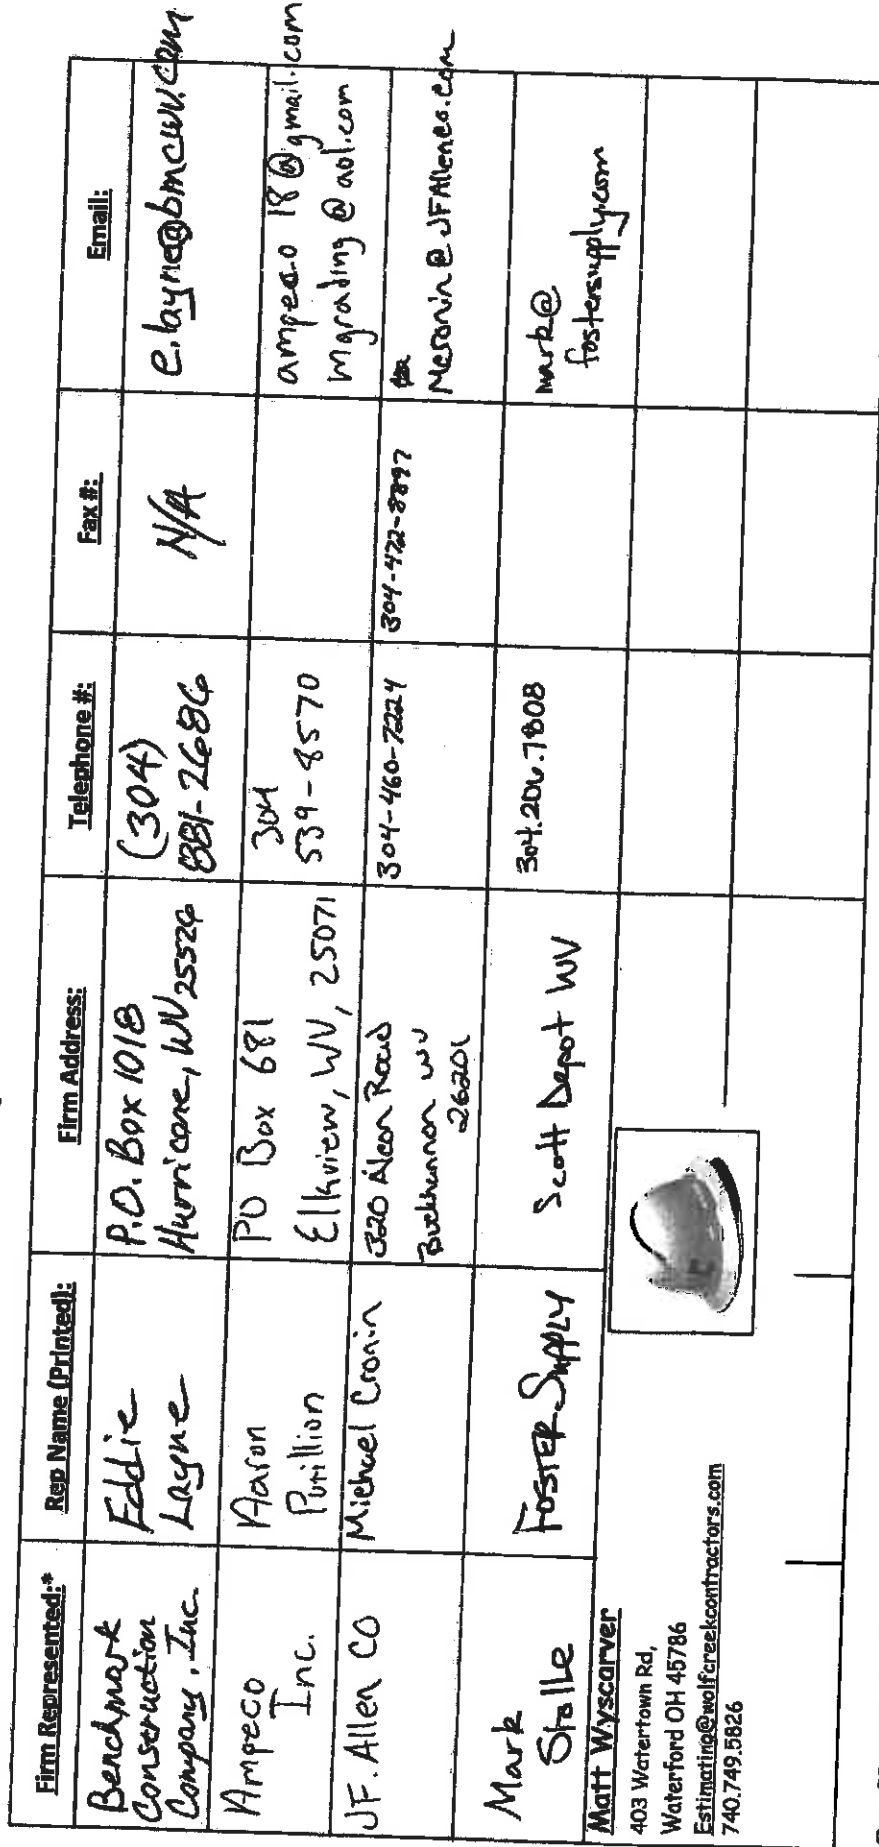 Firm Represented:* Rep Name (Printed): Firm Address: Telephone #: Fax #: Email:
Benchmark
Construction
Company, Inc.
Eddie
Layne
P.O. Box 1018
Hurricane, WV 25526
(304)
881-2686
N/A
e.layne@bmcwv.com
Ampeco
Inc.
Aaron
PO Box 681
Elkview, WV, 25071
304
539-8570
ampeco18@gmail.com
mgrading@aol.com
JF. Allen CO
Michael Cronin
320 Alcon Road
Buckhannon WV
26201
304-460-7224
304-472-8897
Mcronin@JFAllenco.com
Mark
Stalle
FOSTER SUPPLY
Scott Depot WV
304.206.7808
mark@
fostersupply.com
Matt Wyscarver
403 Watertown Rd,
Waterford OH 45786
Estimating@wolfcreekcontractors.com
740.749.5826